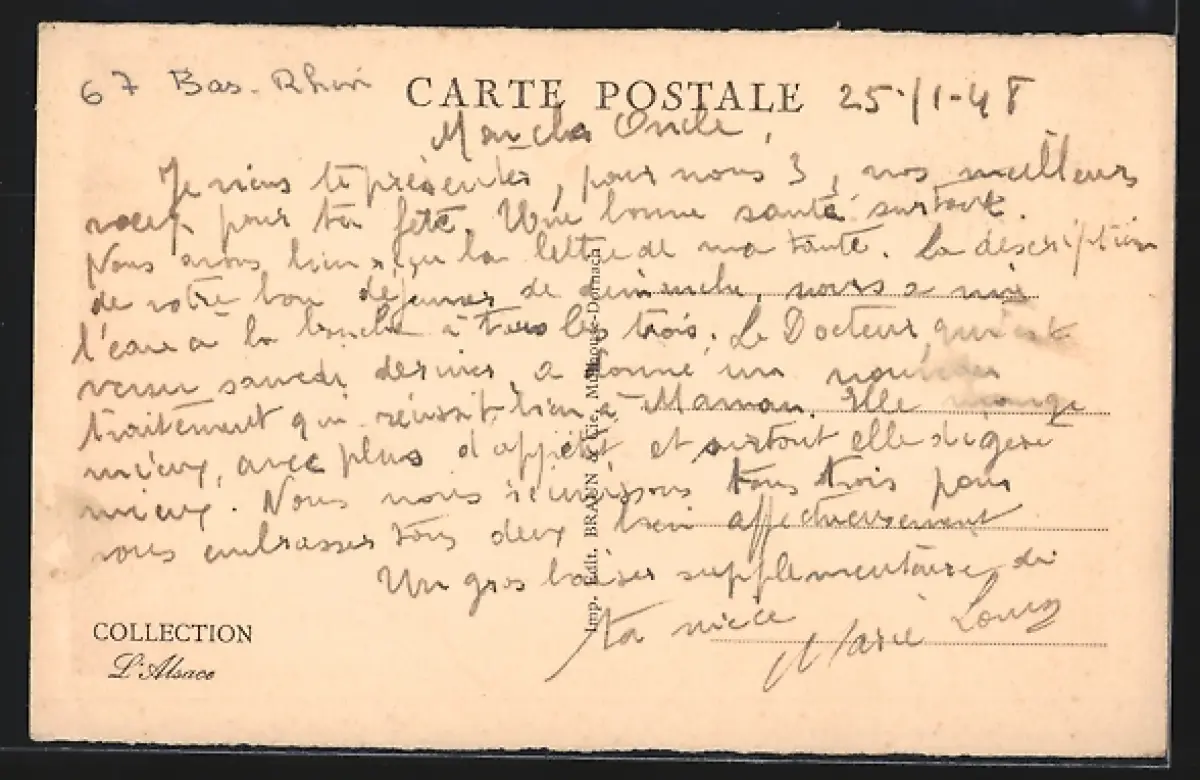 67 Bas-Rhin
CARTE POSTALE
25-/1-48
Mon cher Oncle,
Je viens te présenter, pour nous 3, nos meilleurs
voeux pour ta fête. Une bonne santé surtout.
Nous avons bien reçu la lettre de ma tante. La description
de votre bon déjeuner de dimanche, nous a mis
l'eau à la bouche à tous les trois. Le Docteur qui est
venu samedi dernier, a donné un nouveau
traitement qui réussit bien à Maman. Elle mange
mieux, avec plus d'appétit et surtout elle digère
mieux. Nous nous réunissons tous trois pour
vous embrasser tous deux bien affectueusement
Un gros baiser supplémentaire de
ta nièce
Marie Louise
Imp. Edit. BRAUN & Cie, Mulhouse-Dornach
COLLECTION
L'Alsace